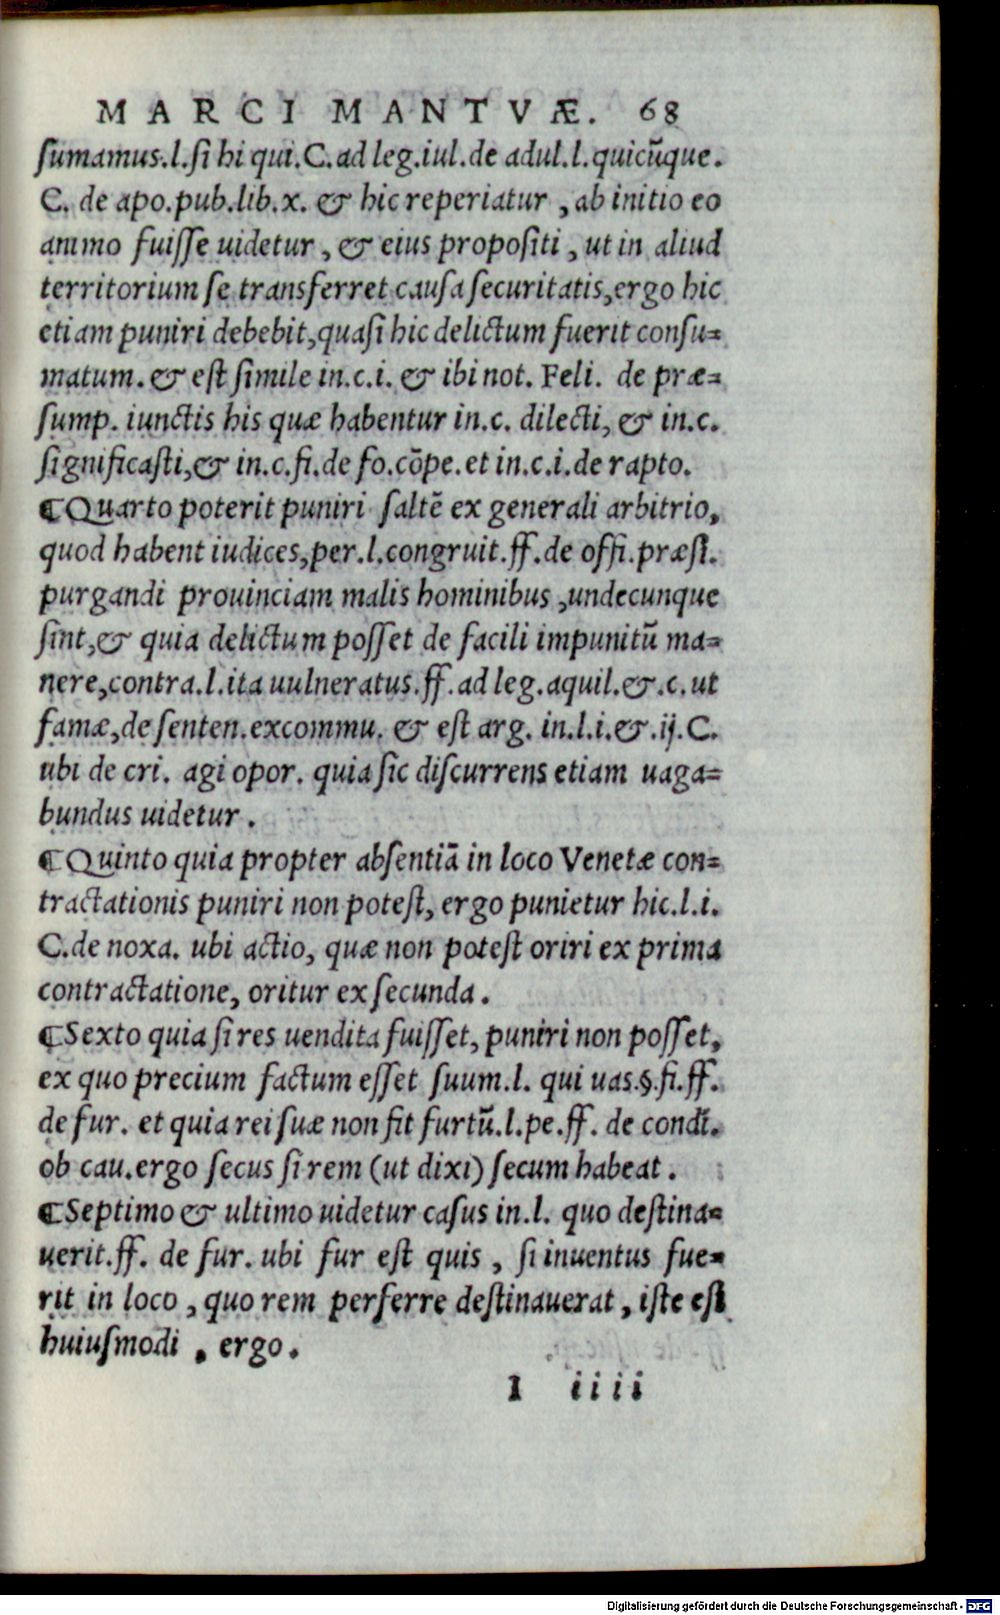 MARCI MANTVÆ. 68
ſumamus.l.ſi hi qui.C.ad leg.iul.de adul.l.quicūque.
C. de apo.pub.lib.x. & hic reperiatur , ab initio eo
animo fuiſſe uidetur , & eius propoſiti , ut in aliud
territorium ſe transferret cauſa ſecuritatis,ergo hic
etiam puniri debebit,quaſi hic delictum fuerit conſu=
matum. & eſt ſimile in.c.i. & ibi not. Feli. de præ=
ſump. iunctis his quæ habentur in.c. dilecti, & in.c.
ſignificaſti,& in.c.fi.de fo.cōpe.et in.c.i.de rapto.
¶Quarto poterit puniri ſaltē ex generali arbitrio,
quod habent iudices,per.l.congruit.ff.de offi.præſ.
purgandi prouinciam malis hominibus ,undecunque
ſint,& quia delictum poſſet de facili impunitū ma=
nere,contra.l.ita uulneratus.ff.ad leg.aquil.&.c.ut
famæ,de ſenten.excommu. & eſt arg. in.l.i.&.ij.C.
ubi de cri. agi opor. quia ſic diſcurrens etiam uaga=
bundus uidetur .
¶Quinto quia propter abſentiā in loco Venetæ con=
tractationis puniri non poteſt, ergo punietur hic.l.i.
C.de noxa. ubi actio, quæ non poteſt oriri ex prima
contractatione, oritur ex ſecunda .
¶Sexto quia ſi res uendita fuiſſet, puniri non poſſet,
ex quo precium factum eſſet ſuum.l. qui uas.§.fi.ff.
de fur. et quia rei ſuæ non fit furtū.l.pe.ff. de condi̅.
ob cau.ergo ſecus ſi rem (ut dixi) ſecum habeat .
¶Septimo & ultimo uidetur caſus in.l. quo deſtina=
uerit.ff. de fur. ubi fur eſt quis , ſi inuentus fue=
rit in loco , quo rem perferre deſtinauerat , iſte eſt
huiuſmodi , ergo .
I iiii
Digitalisierung gefördert durch die Deutsche Forschungsgemeinschaft - DFG